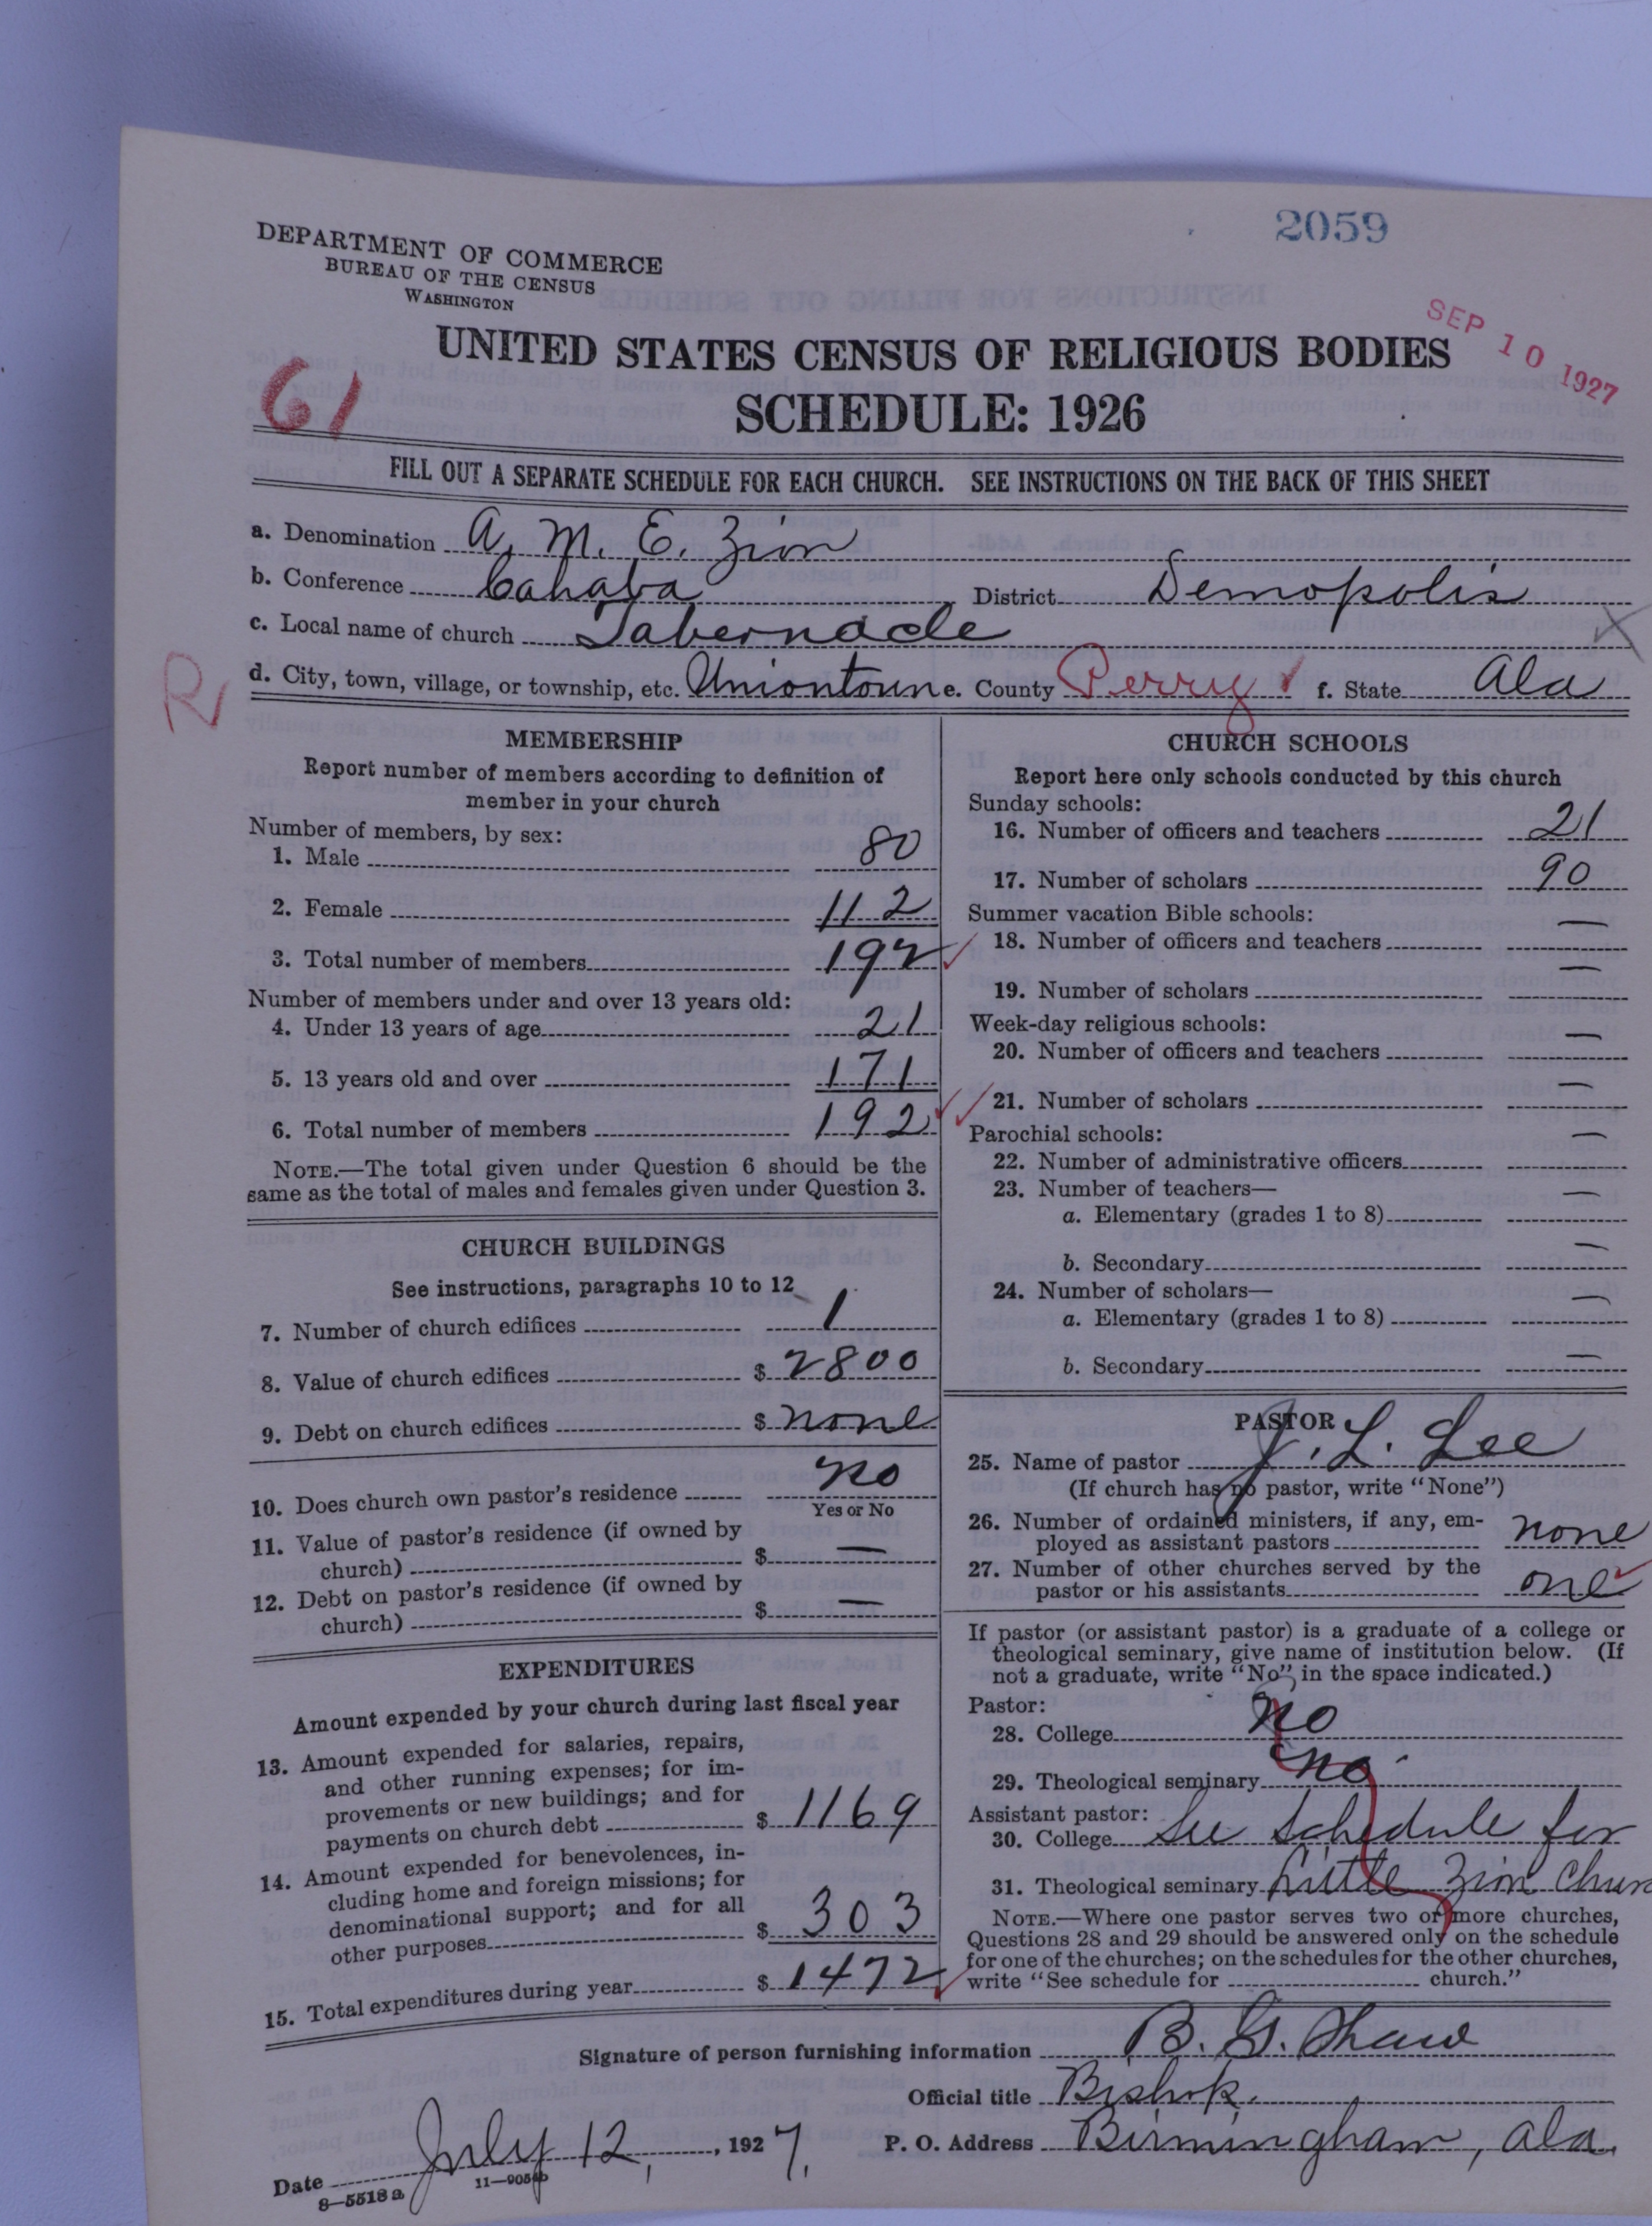 2059
DEPARTMENT OF COMMERCE
BUREAU OF THE CENSUS
WASHINGTON
SEP 10 1927
UNITED STATES CENSUS OF RELIGIOUS BODIES
SCHEDULE: 1926
61
FILL OUT A SEPARATE SCHEDULE FOR EACH CHURCH. SEE INSTRUCTIONS ON THE BACK OF THIS SHEET
a. Denomination A. M. E. Zion
b. Conference Cahaba District Demopolis
c. Local name of church Tabernacle
R
d. City, town, village, or township, etc. Uniontown e. County Perry f. State Ala
MEMBERSHIP
Report number of members according to definition of
member in your church
Number of members, by sex:
1. Male 80
2. Female 112
3. Total number of members 192
Number of members under and over 13 years old:
4. Under 13 years of age 21
5. 13 years old and over 171
6. Total number of members 192
NOTE.—The total given under Question 6 should be the
same as the total of males and females given under Question 3.
CHURCH BUILDINGS
See instructions, paragraphs 10 to 12
7. Number of church edifices 1
8. Value of church edifices $ 2800
9. Debt on church edifices $ none
10. Does church own pastor's residence no
Yes or No
11. Value of pastor's residence (if owned by
church) $ —
12. Debt on pastor's residence (if owned by
church) $ —
EXPENDITURES
Amount expended by your church during last fiscal year
13. Amount expended for salaries, repairs,
and other running expenses; for im-
provements or new buildings; and for
payments on church debt $ 1169
14. Amount expended for benevolences, in-
cluding home and foreign missions; for
denominational support; and for all
other purposes $ 303
15. Total expenditures during year $ 1472
CHURCH SCHOOLS
Report here only schools conducted by this church
Sunday schools:
16. Number of officers and teachers 21
17. Number of scholars 90
Summer vacation Bible schools:
18. Number of officers and teachers —
19. Number of scholars —
Week-day religious schools:
20. Number of officers and teachers —
21. Number of scholars —
Parochial schools:
22. Number of administrative officers —
23. Number of teachers—
a. Elementary (grades 1 to 8) —
b. Secondary —
24. Number of scholars—
a. Elementary (grades 1 to 8) —
b. Secondary —
PASTOR
25. Name of pastor J. L. Lee
(If church has no pastor, write "None")
26. Number of ordained ministers, if any, em-
ployed as assistant pastors none
27. Number of other churches served by the
pastor or his assistants one
If pastor (or assistant pastor) is a graduate of a college or
theological seminary, give name of institution below. (If
not a graduate, write "No" in the space indicated.)
Pastor:
28. College no
29. Theological seminary no
Assistant pastor:
30. College See Schedule for
31. Theological seminary Little Zion Churc
NOTE.—Where one pastor serves two or more churches,
Questions 28 and 29 should be answered only on the schedule
for one of the churches; on the schedules for the other churches,
write "See schedule for church."
Signature of person furnishing information B. G. Shaw
Official title Bishop.
Date July 12, 1927. P. O. Address Birmingham, Ala.
8—5518 a 11—9054b